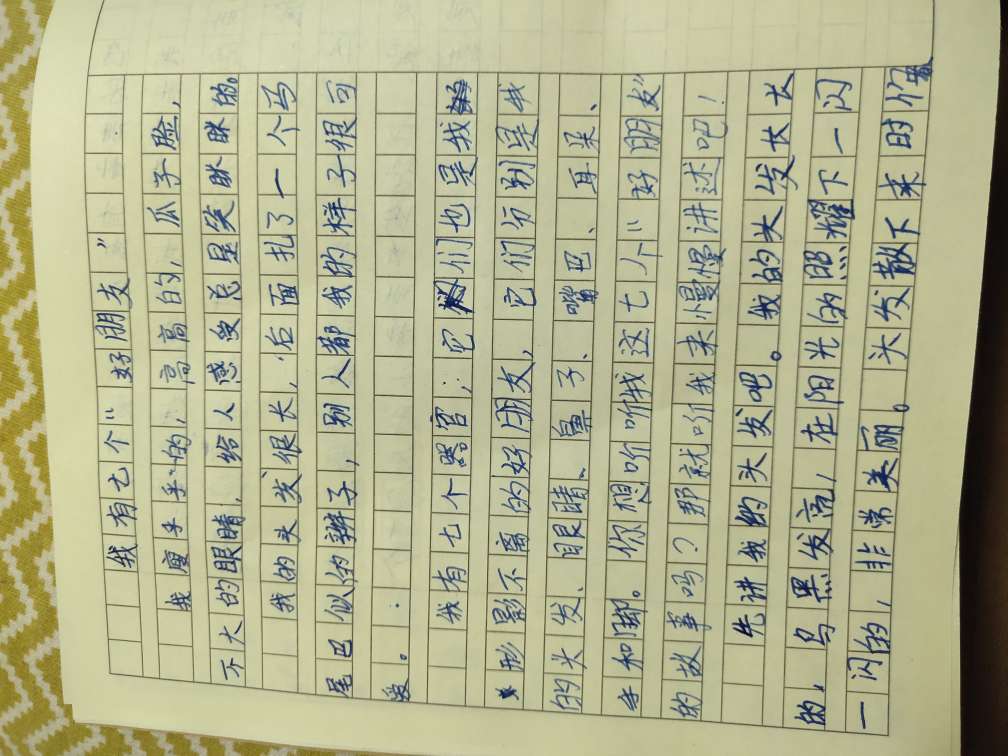 我有七个“好朋友”
我瘦乎乎的，高高的，瓜子脸，
不大的眼睛，给人感受总是笑眯眯的。
我的头发很长，后面扎了一个马
尾巴似的辫子，别人都我的样子很可
爱。
我有七个器官，它们也是我
形影不离的好朋友，它们分别是我
的头发、眼睛、鼻子、嘴巴、耳朵、
和脚。你想听听我这七个“好朋友”
的故事吗？那就听我来慢慢讲述吧！
先讲我的头发吧。我的头发长长
的，乌黑发亮，在阳光的照耀下一闪
一闪的，非常美丽。头发散下来时像